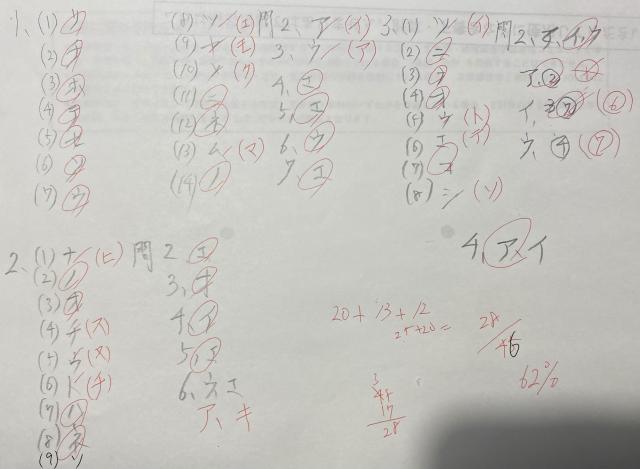 1、(1) ウ
(2) オ
(3) ホ
(4) テ
(5) モ
(6) ス
(7) ウ
(8) ツ (エ)
(9) ナ (モ)
(10) メ (ク)
(11) ニ
(12) ネ
(13) ム (マ)
(14) ノ
問2、ア (イ)
3、ウ (ア)
4、エ
5、エ
6、ウ
7、エ
3、(1) ツ (イ)
(2) ニ
(3) テ
(4) オ
(5) ウ (ト)
(6) エ
(7) エ
(8) シ (ソ)
問2、イ、ウ
ア、②
イ、⑦ (⑥)
ウ、④ (⑦)
4、ア、イ
2、(1) ナ (ヒ)
(2) ノ
(3) オ
(4) チ (ス)
(5) (ヌ)
(6) ト (チ)
(7) ハ
(8) ネ
(9) ソ
問2 エ
3、オ
4 イ
5、エ
6、ウエ
ア、キ
20 + 13 + 12
25+20=
28
62%
17
28